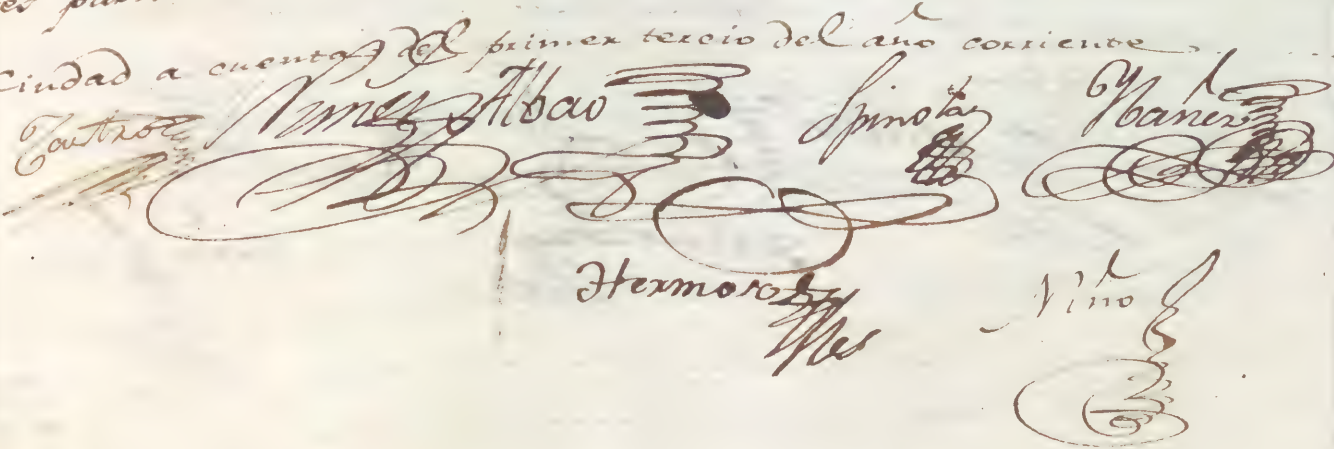 Ciudad a cuenta del primer tercio del año corriente
Castro Nuñez Albao Spinola Ybañez
Hermoso Niño